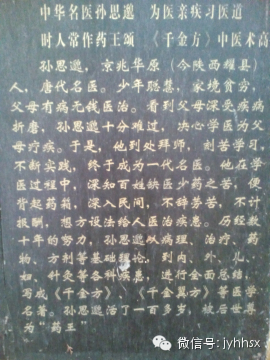 中华名医孙思邈 为医亲疾习医道
时人常作药王颂 《千金方》中医术高
孙思邈，京兆华原（今陕西耀县）
人，唐代名医。少年聪慧，家境贫穷，
父母有病无钱医治。看到父母深受疾病
折磨，孙思邈十分难过，决心学医为父
母疗疾。于是，他到处拜师，刻苦学习，
不断实践，终于成为一代名医。他在学
医过程中，深知百姓缺医少药之苦，便
背起药箱，深入民间，不辞劳苦，不计
报酬，想方设法给人医治疾患。历经数
十年的努力，孙思邈从病理、治疗、药
物、方剂等基础理论，到内、外、儿、
妇、针灸等各科疾患，进行全面总结，
写成《千金方》、《千金翼方》等医学
名著。孙思邈活了一百多岁，被后世尊
为“药王”
微信号：jyhhsx